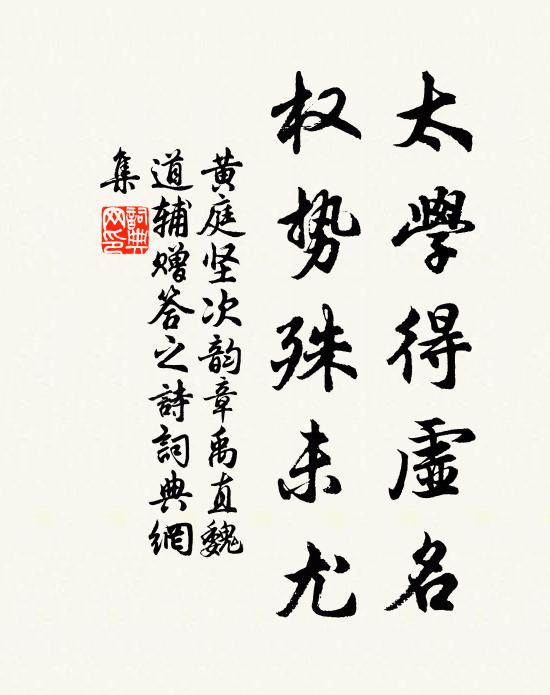 太學得虛名
权势殊未尤
黄庭坚次韵章禹直魏
道辅赠答之詩詞典網
集
詞典
网印